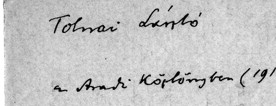 Tolnai László
az Aradi Közlönyben (191